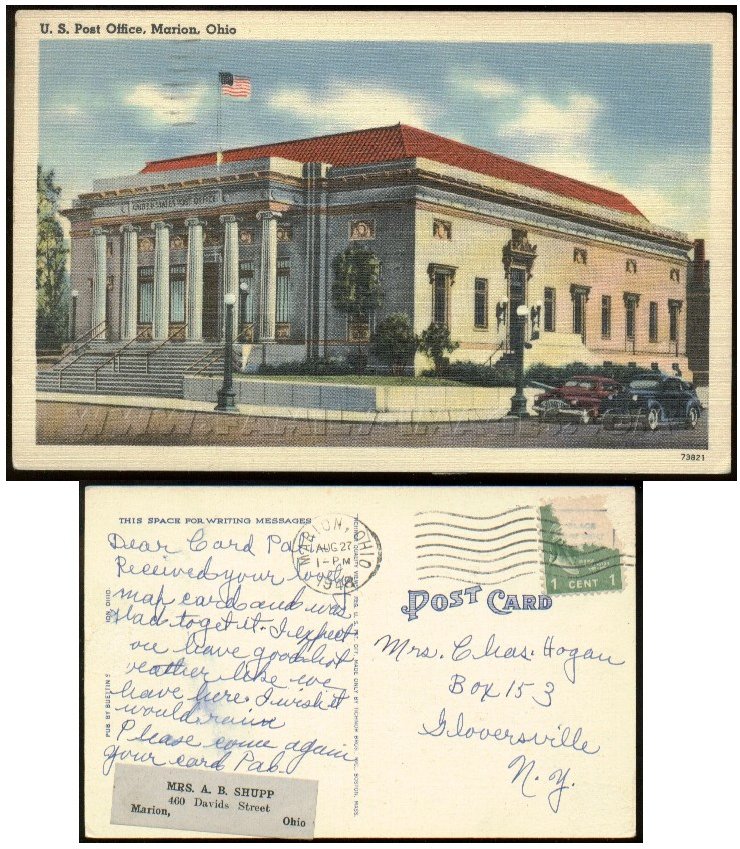 U. S. Post Office, Marion, Ohio
UNITED STATES POST OFFICE
73821
THIS SPACE FOR WRITING MESSAGES
Dear Card Pal
Received your lovely
map card and was
glad to get it. I expect
you have good hot
weather like we
have here. I wish it
would rain
Please come again
your card Pal.
MRS. A. B. SHUPP
460 Davids Street
Marion,
Ohio
MARION, OHIO
AUG 27
1-PM
1948
1 CENT 1
POST CARD
Mrs. Chas. Hogan
Box 153
Gloversville
N.Y.